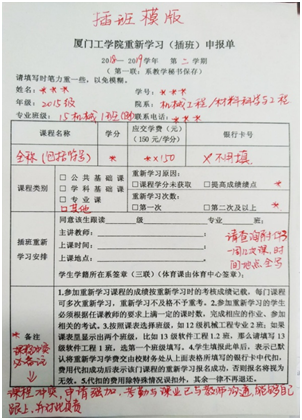 插班模版
厦门工学院重新学习（插班）申报单
2018—2019学年 第二学期
（第一联：系教学秘书保存）
请填写时笔力重一些，以免模糊。
姓名：*** 学号：***
年级：2015级 院系：机械工程/材料科学与工程
专业班级：15机械1班 联系电话：***
课程名称 学分 应交学费（元）（150元/学分） 银行卡号
全称（包括符号） * *×150 ×不用填
课程类别
□公共基础课
□学科基础课
□专业课
□其他
重新学习原因：
□课程学分未获取 □提高成绩绩点 *
重新学习次数：
□第一次 □第二次及以上 *
插班重新学习安排
同意该生跟读 级 专业 班：
主讲教师：
上课时间：
上课地点：
学生学籍所在系签章（三联）（体育课由体育中心签章）
*备注
1.参加重新学习课程的成绩按重新学习时的考核成绩记载，每门课程可多次重新学习，重新学习不及格不予重考。2.参加重新学习的学生必须根据任课教师的要求上满一定的课时数，完成相应的作业，参加相关的考试。3.按照课表选择班级，如12级机械工程专业2班；如果课表里显示出两个班级，比如13级软件工程1.2班，那么请填写13级软件工程1班，选第一个班级填写。4.学生填报此单后，表示已默认将重新学习学费交由校财务处从上面表格所填写的银行卡中代扣，费用代扣成功后表示该门课程重新学习报名成功，否则报名将视为无效。5.代扣的费用除特殊情况误扣外，其余一律不再退还。
课程冲突，申请强加，考勤与课业已与教师沟通，能够跟上，并对此负责